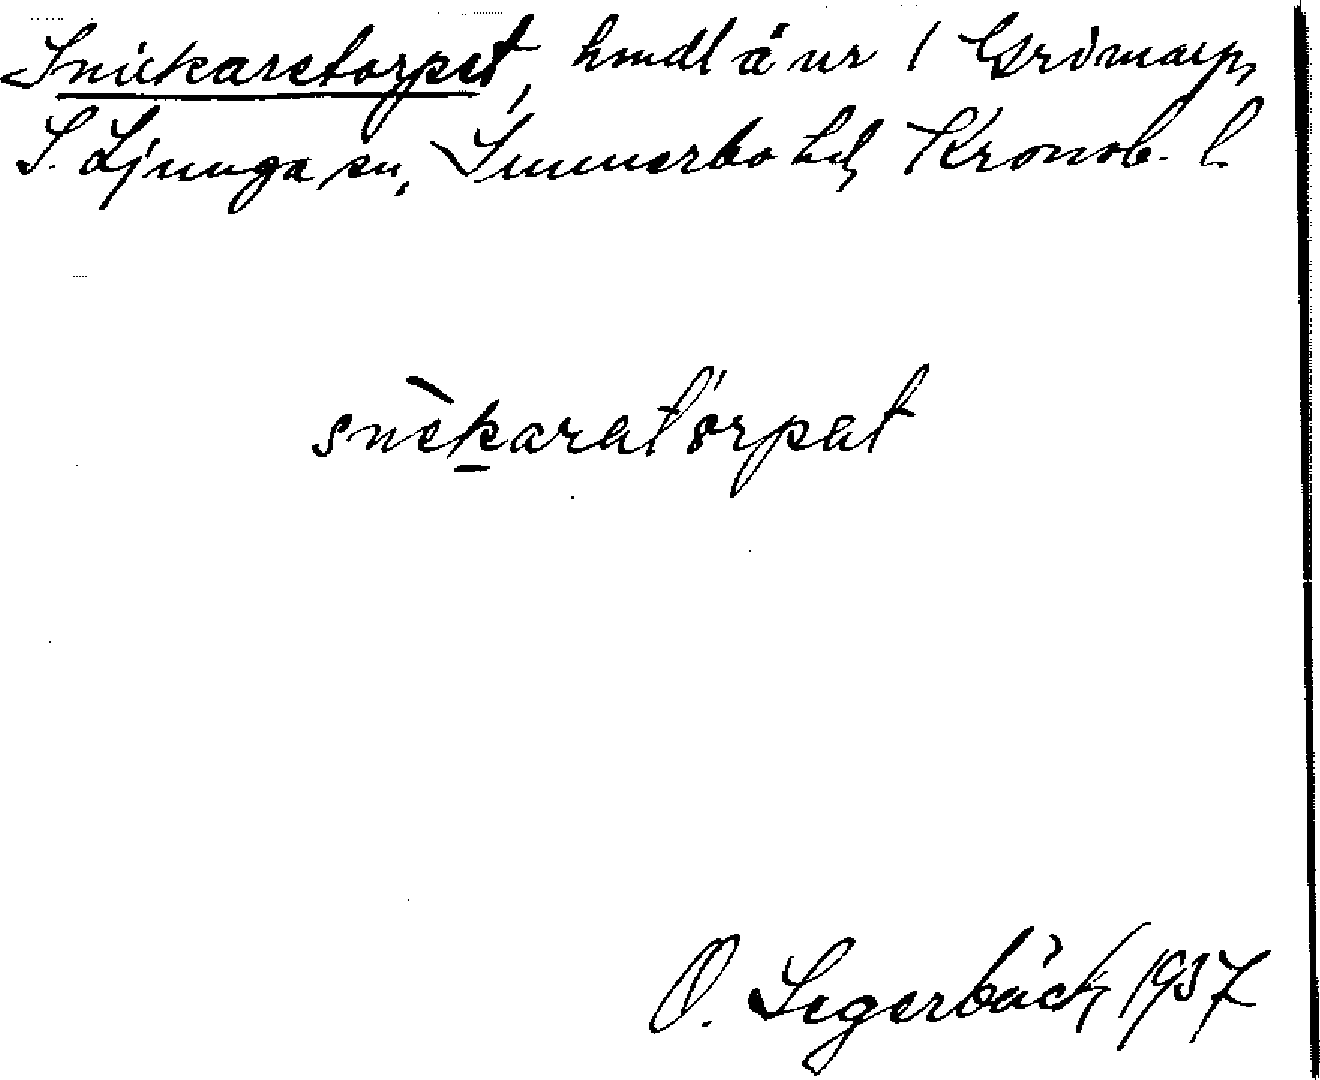 Snickaretorpet, hmdl å nr 1 Grimarp,
S. Ljunga sn, Sunnerbo hd, Kronob. l.
snèkaratórpat
O. Segerbäck 1937